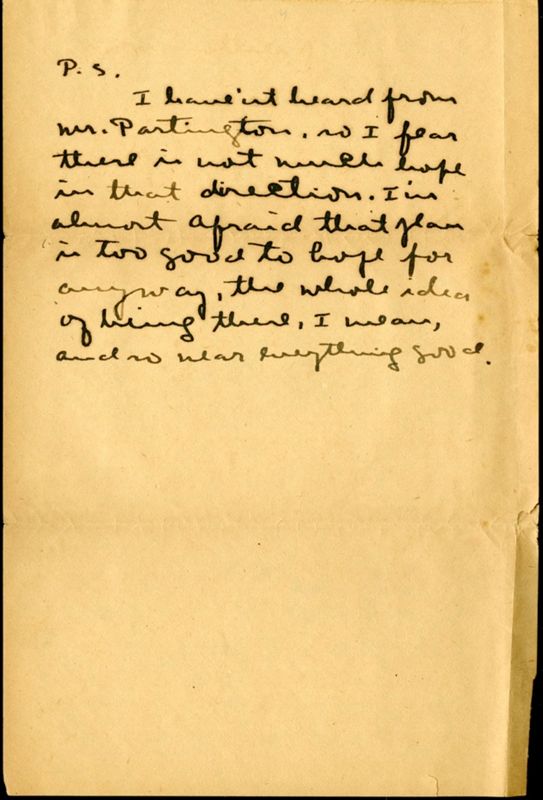 P. S.
I have'nt heard from
Mr. Partington, so I fear
there is not much hope
in that direction. I'm
almost afraid that plan
is too good to hope for
anyway, the whole idea
of being there, I mean,
and so near everything good.